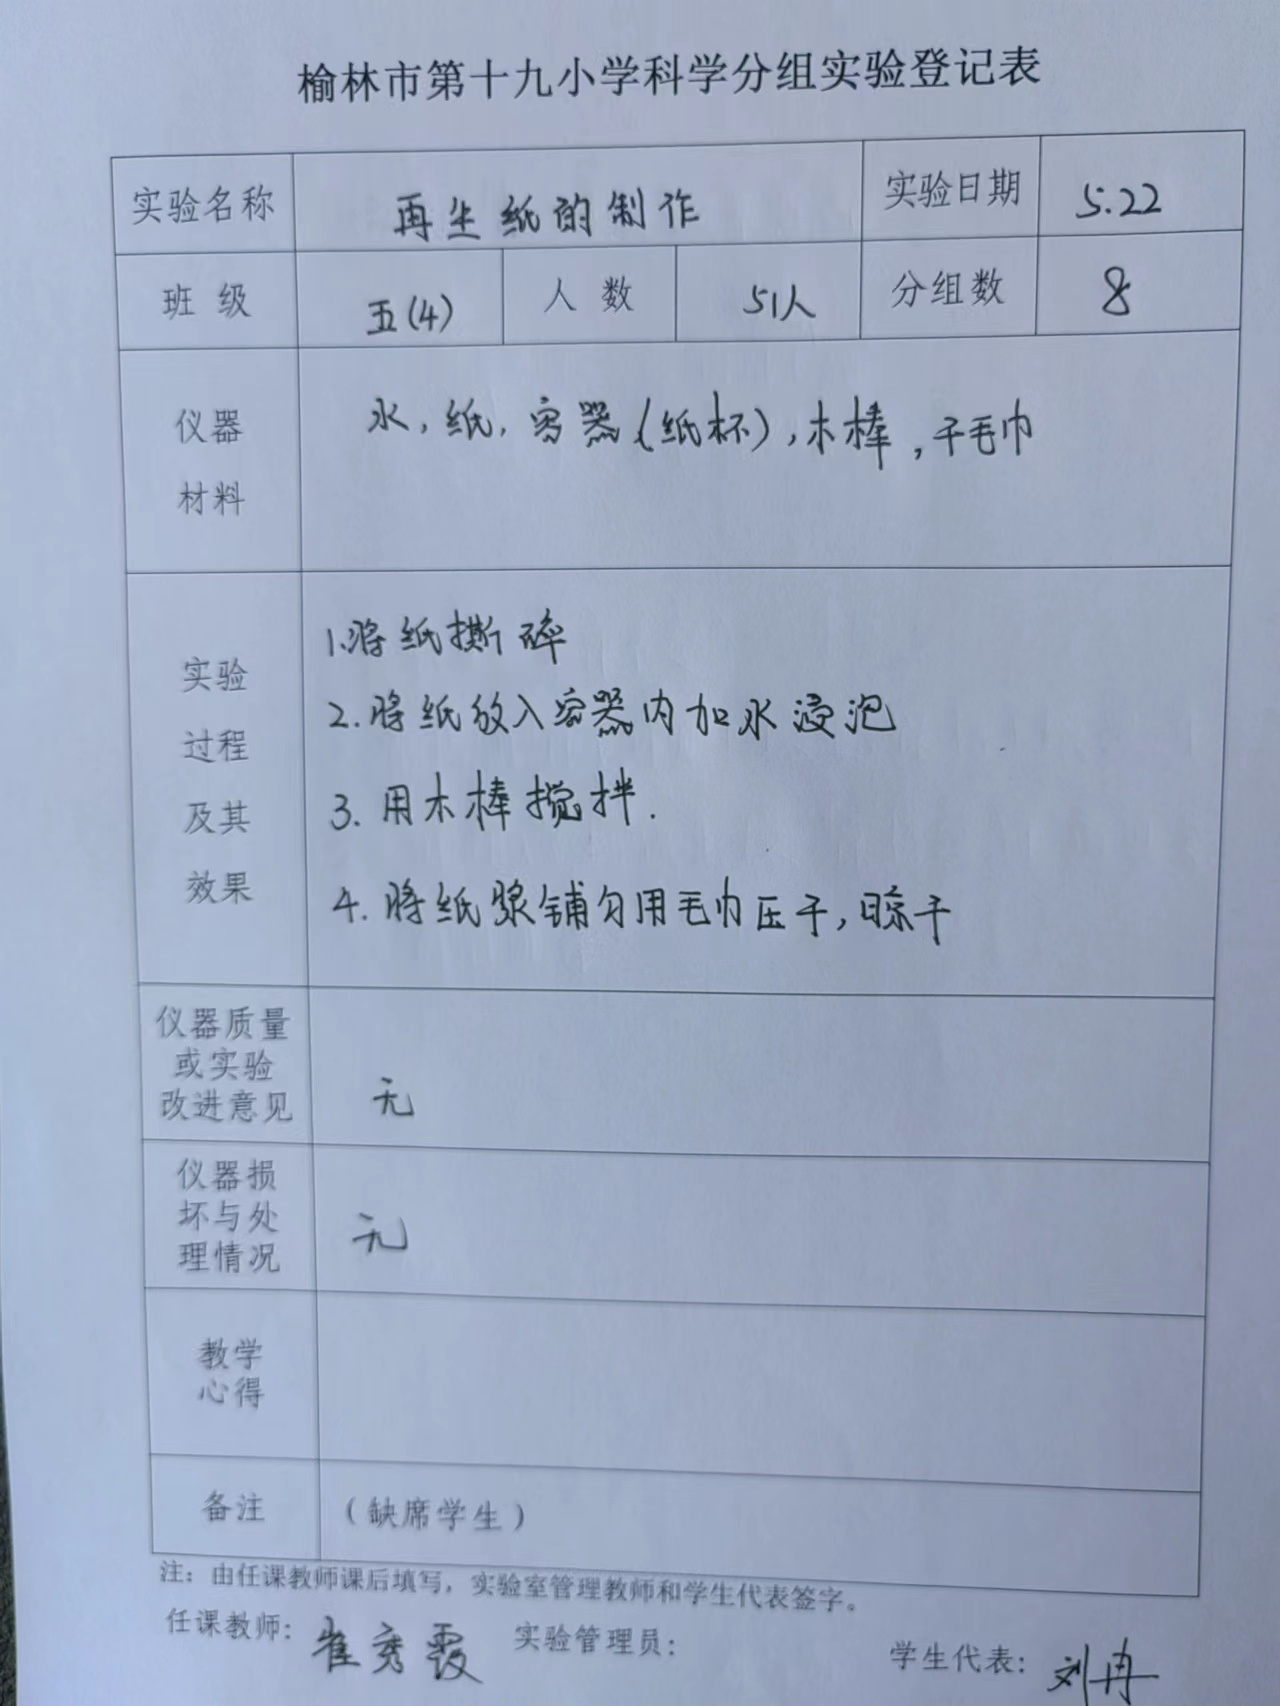 榆林市第十九小学科学分组实验登记表
实验名称 再生纸的制作 实验日期 5.22
班 级 五(4) 人 数 51人 分组数 8
仪器
材料
水，纸，容器(纸杯)，木棒，干毛巾
实验
过程
及其
效果
1.将纸撕碎
2.将纸放入容器内加水浸泡
3.用木棒搅拌.
4.将纸浆铺匀用毛巾压干,晾干
仪器质量
或实验
改进意见
无
仪器损
坏与处
理情况
无
教学
心得
备注 （缺席学生）
注：由任课教师课后填写，实验室管理教师和学生代表签字。
任课教师：崔秀霞 实验管理员： 学生代表：刘冉